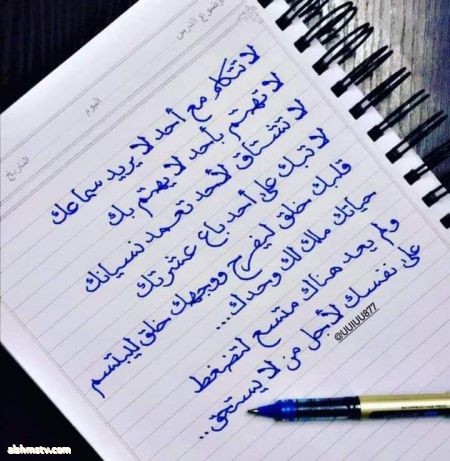 موضوع الدرس
اليوم
التاريخ
لا تتكلم مع أحد لا يريد سماعك
لا تهتم بأحد لا يهتم بك
لا تشتاق لأحد تعمد نسيانك
لا تبك على أحد باع عشرتك
قلبك خلق ليفرح ووجهك خلق ليبتسم
حياتك ملك لك وحدك...
ولم يعد هناك متسع لتضغط
على نفسك لأجل من لا يستحق..
@UUIUU877
alshmstv.com